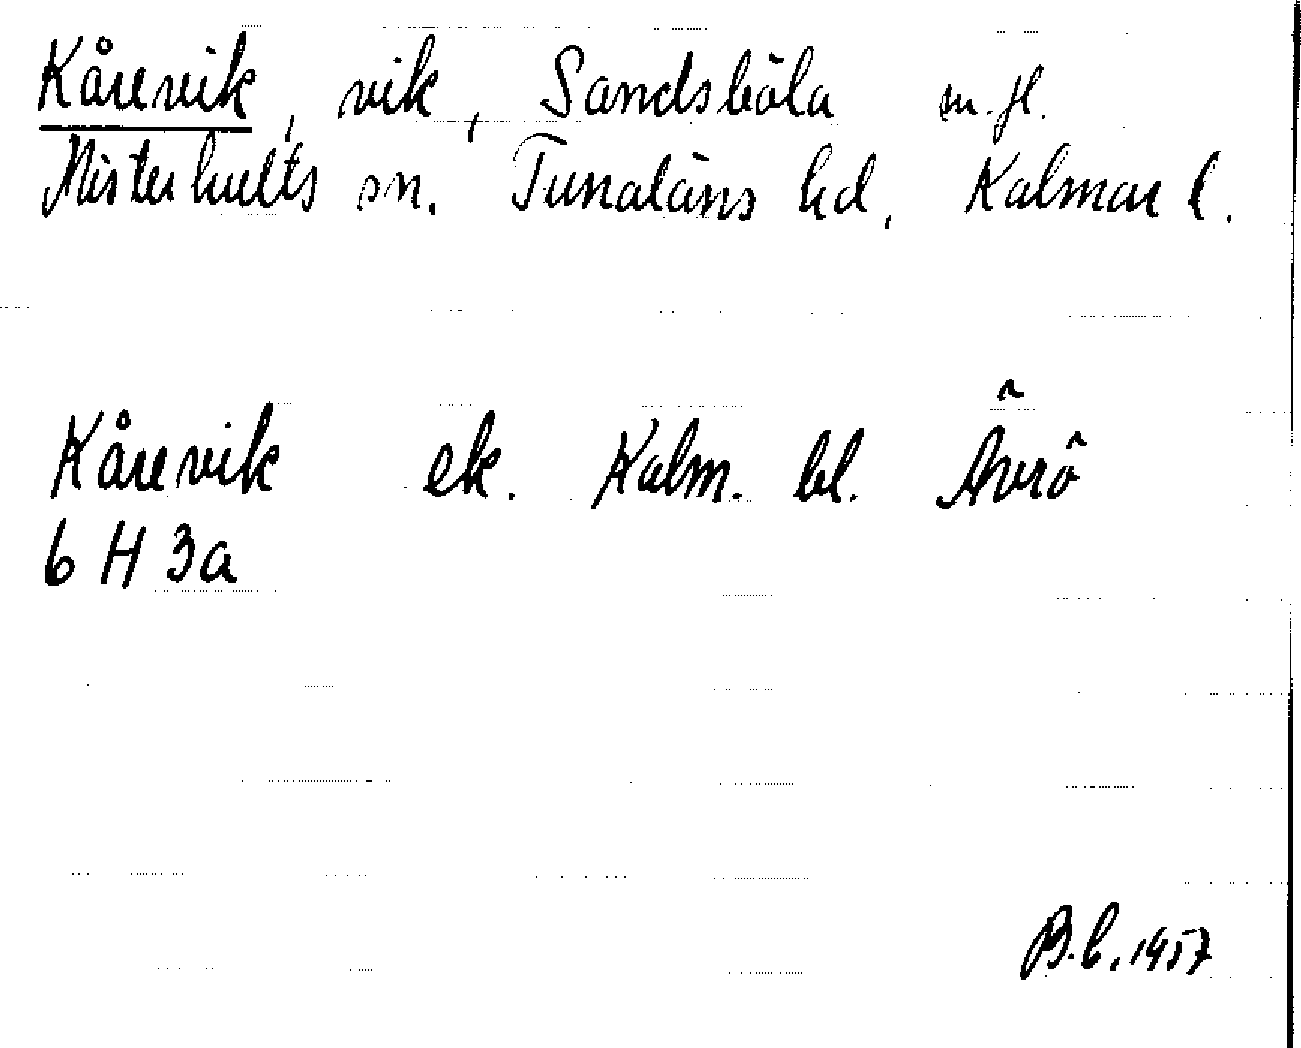 Kårevik, vik, Sandsböla m.fl.
Misterhults sn. Tunaläns hd, Kalmar l.
Kårevik ek. Kalm. bl. Ävrö
6 H 3a
B.L. 1957